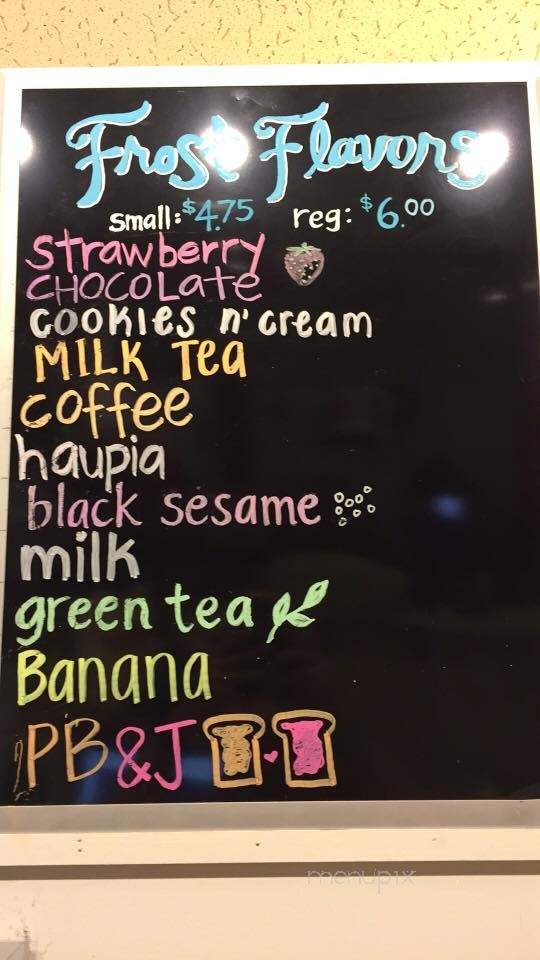 Frost Flavors
small: $4.75 reg: $6.00
Strawberry
CHOCOLate
cookies n' cream
MILK Tea
coffee
haupia
black sesame
milk
green tea
Banana
PB&J
menupix